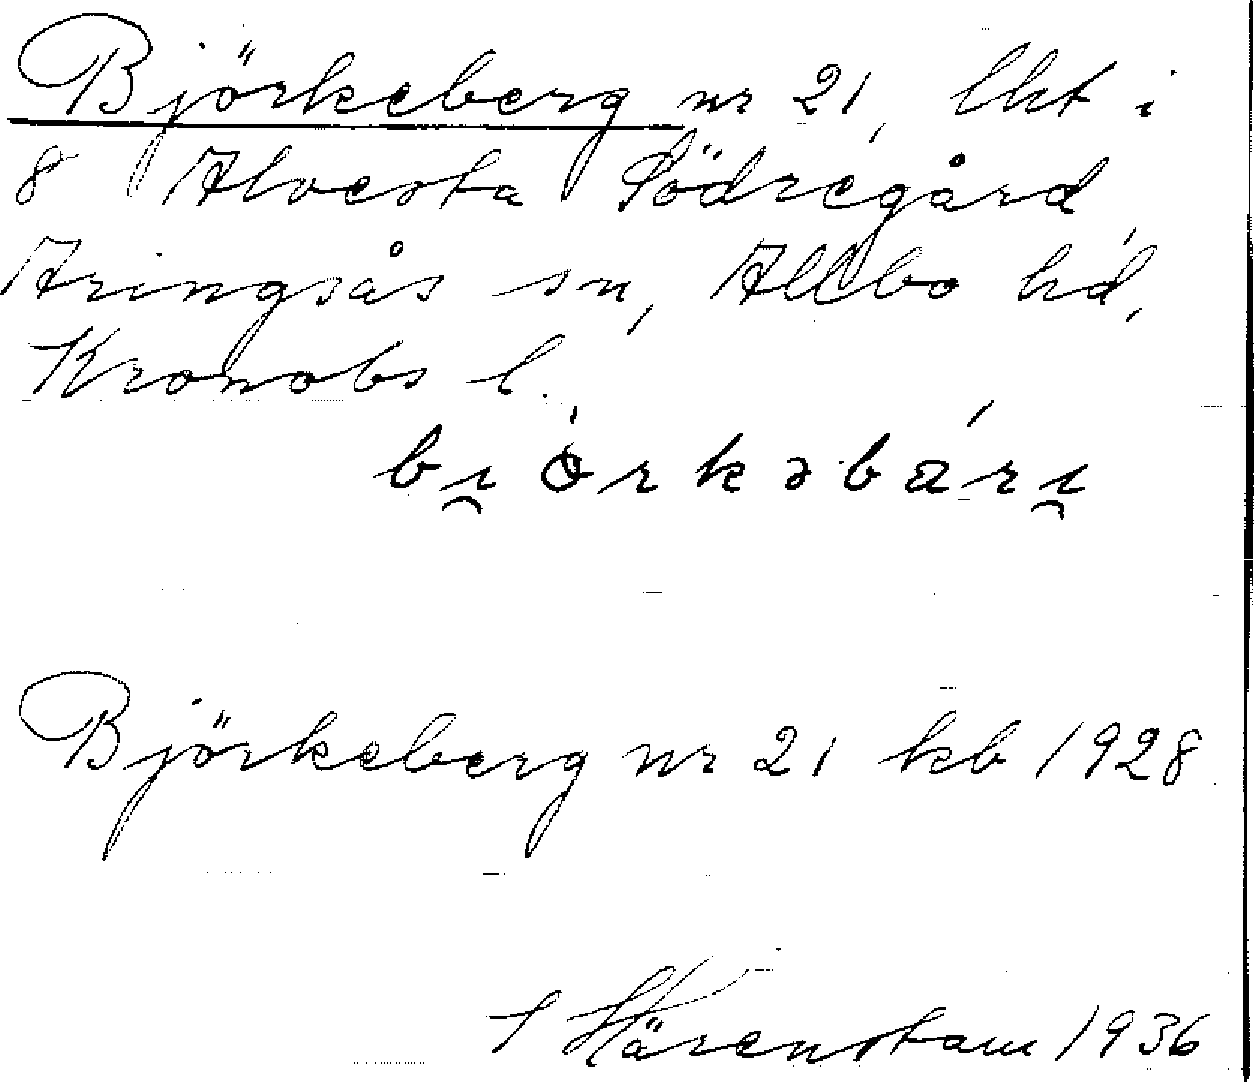 Björkeberg nr 21, lht i
8 Alvesta Södregård
Aringsås sn, Allbo hd,
Kronobs l.
bi̯òrkəbári̯
Björkeberg nr 21 kb 1928
1936